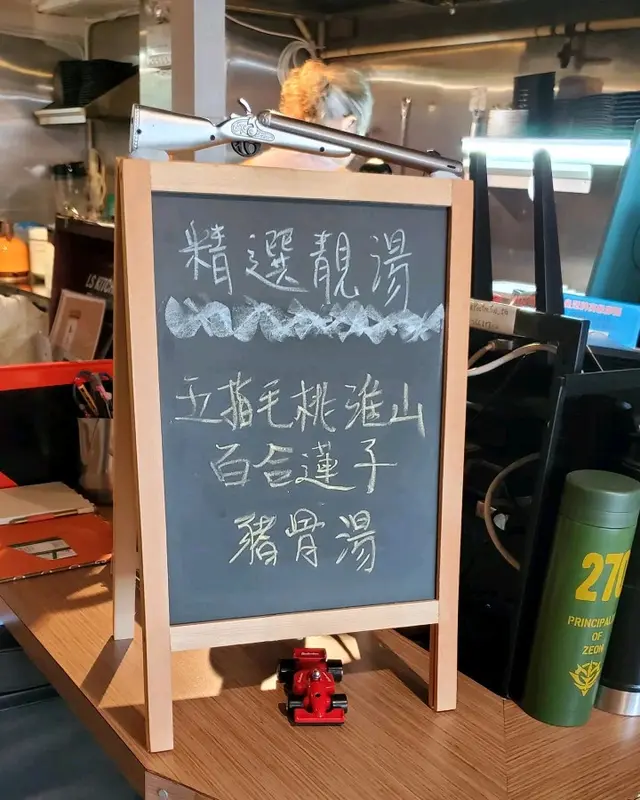 精選靚湯
五指毛桃淮山
百合蓮子
豬骨湯
LS KITCHEN
270
PRINCIPAL
OF
ZEON